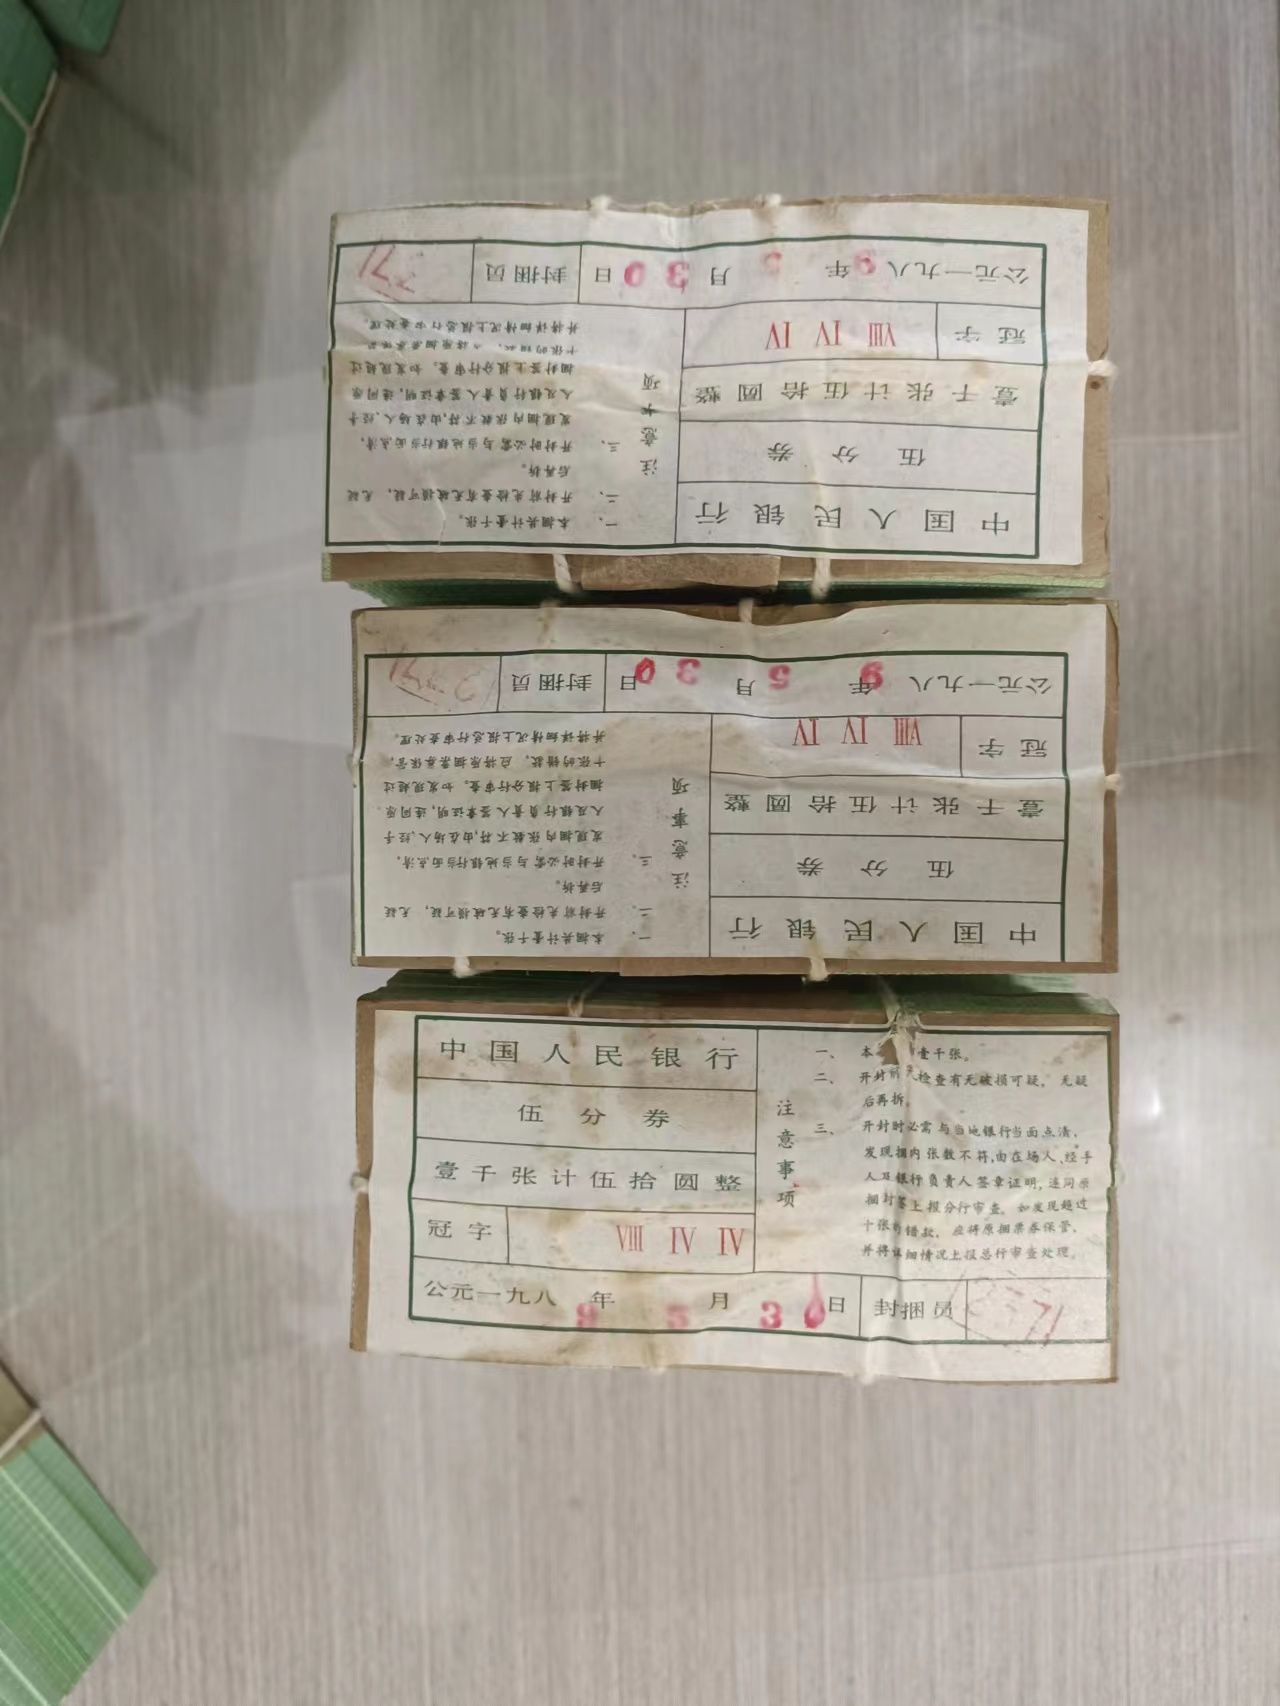 中国人民银行
伍分券
壹千张计伍拾圆整
冠字 VIII IV IV
公元一九八 年 5 月 30 日 封捆员
注意事项
一、本捆共计壹千张。
二、开封前先检查有无破损可疑，无疑
后再拆。
三、开封时必需与当地银行当面点清，
发现捆内张数不符,由在场人、经手
人及银行负责人签章证明,连同原
捆封签上报分行审查。如发现超过
十张的错款，应将原捆票券保管，
并将详细情况上报总行审查处理。
中国人民银行
伍分券
壹千张计伍拾圆整
冠字 VIII IV IV
公元一九八 年 5 月 30 日 封捆员
注意事项
一、本捆共计壹千张。
二、开封前先检查有无破损可疑，无疑
后再拆。
三、开封时必需与当地银行当面点清，
发现捆内张数不符,由在场人、经手
人及银行负责人签章证明,连同原
捆封签上报分行审查。如发现超过
十张的错款，应将原捆票券保管，
并将详细情况上报总行审查处理。
中国人民银行
伍分券
壹千张计伍拾圆整
冠字 VIII IV IV
公元一九八 年 5 月 30 日 封捆员
注意事项
一、本 壹千张。
二、开封前 检查有无破损可疑，无疑
后再拆。
三、开封时必需与当地银行当面点清，
发现捆内张数不符,由在场人、经手
人及银行负责人签章证明,连同原
捆封签上报分行审查。如发现超过
十张的错款，应将原捆票券保管、
并将详细情况上报总行审查处理。